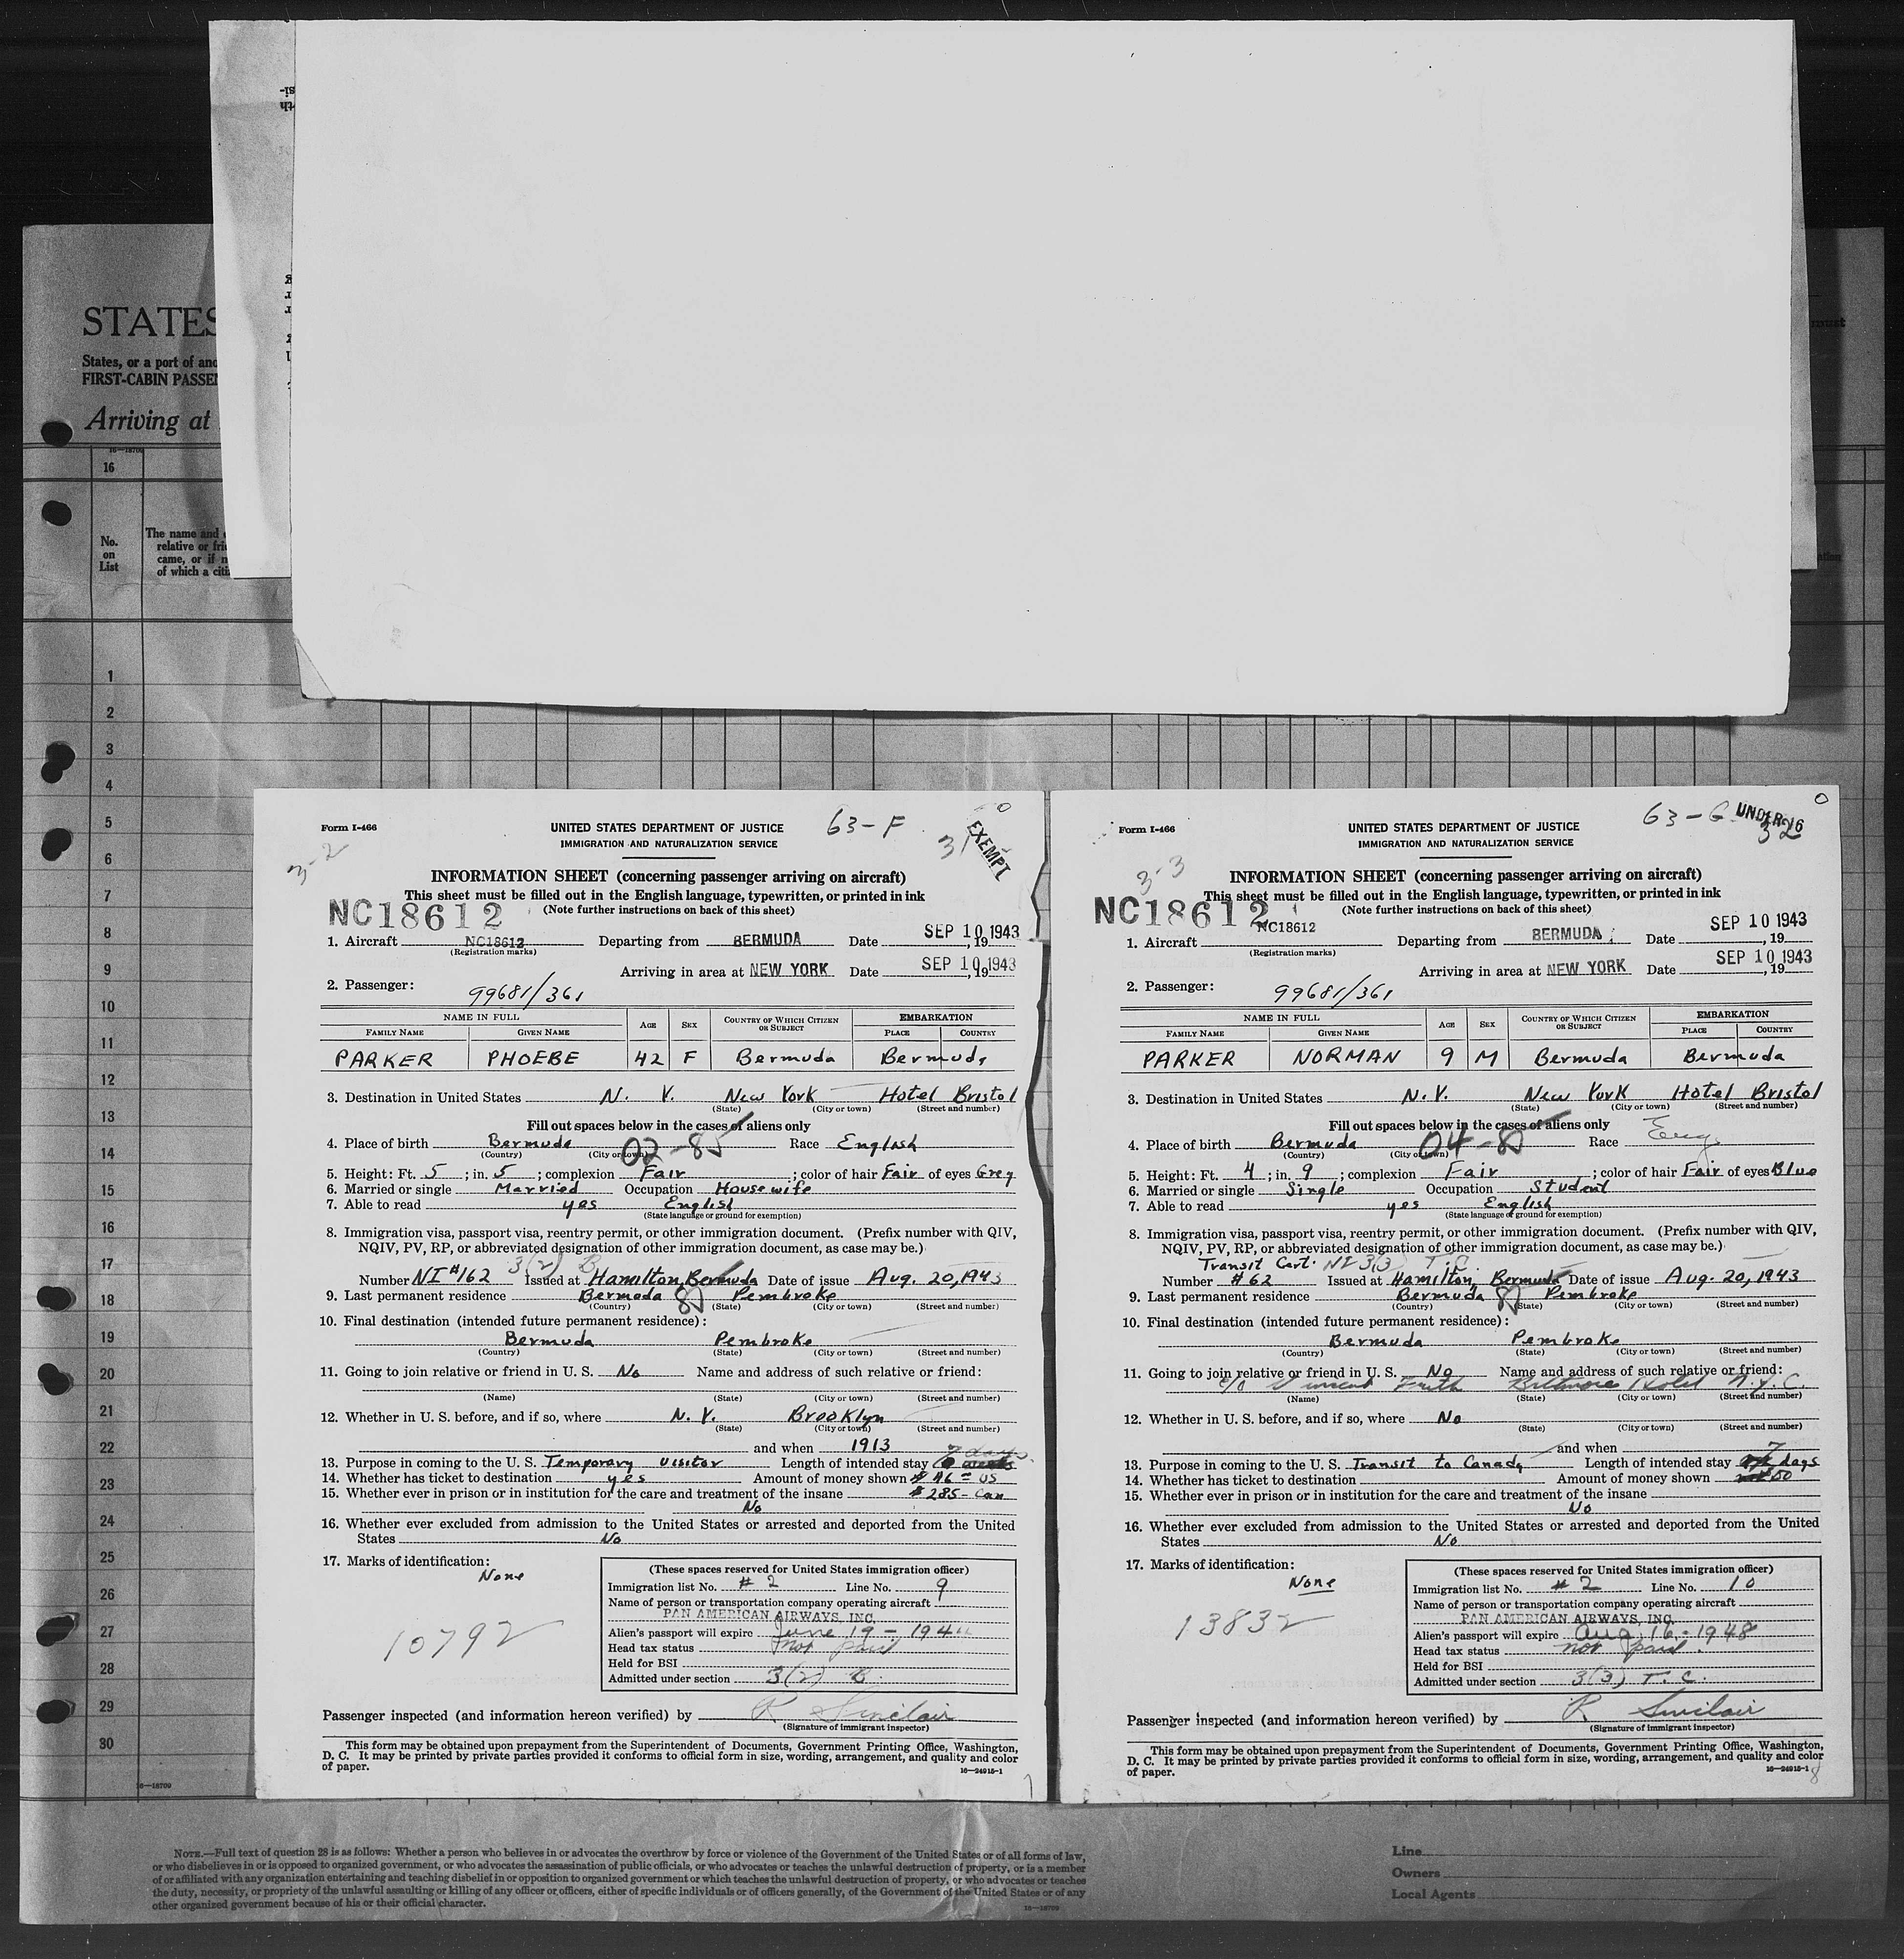 STATES
States, or a port of
FIRST-CABIN
Arriving at
16—18709
16
No.
on
List
The name and
relative or
came, or if
of which a
1
2
3
4
5
6
7
8
9
10
11
12
13
14
15
16
17
18
19
20
21
22
23
24
25
26
27
28
29
30
16—18709
Form I-466
UNITED STATES DEPARTMENT OF JUSTICE
IMMIGRATION AND NATURALIZATION SERVICE
63-F
EXEMPT
3-2
31
INFORMATION SHEET (concerning passenger arriving on aircraft)
This sheet must be filled out in the English language, typewritten, or printed in ink
NC18612
(Note further instructions on back of this sheet)
1. Aircraft NC18612 Departing from BERMUDA Date SEP 10 1943, 19
(Registration marks)
Arriving in area at NEW YORK Date SEP 10 1943, 19
2. Passenger: 99681/361
NAME IN FULL AGE SEX COUNTRY OF WHICH CITIZEN OR SUBJECT EMBARKATION
FAMILY NAME GIVEN NAME PLACE COUNTRY
PARKER PHOEBE 42 F Bermuda Bermuda
3. Destination in United States N. Y. New York Hotel Bristol
(State) (City or town) (Street and number)
Fill out spaces below in the cases of aliens only
4. Place of birth Bermuda 02-85 Race English
(Country) (City or town)
5. Height: Ft. 5; in. 5; complexion Fair; color of hair Fair of eyes Grey
6. Married or single Married Occupation Housewife
7. Able to read yes English
(State language or ground for exemption)
8. Immigration visa, passport visa, reentry permit, or other immigration document. (Prefix number with QIV,
NQIV, PV, RP, or abbreviated designation of other immigration document, as case may be.)
3(2) B
Number NI #162 Issued at Hamilton, Bermuda Date of issue Aug. 20, 1943
9. Last permanent residence Bermuda Pembroke
(Country) (State) (City or town) (Street and number)
10. Final destination (intended future permanent residence):
Bermuda Pembroke
(Country) (State) (City or town) (Street and number)
11. Going to join relative or friend in U. S. No Name and address of such relative or friend:
(Name) (State) (City or town) (Street and number)
12. Whether in U. S. before, and if so, where N. Y. Brooklyn
(State) (City or town) (Street and number)
and when 1913
7 days
13. Purpose in coming to the U. S. Temporary visitor Length of intended stay
14. Whether has ticket to destination yes Amount of money shown $46= US
15. Whether ever in prison or in institution for the care and treatment of the insane $285- Can
No
16. Whether ever excluded from admission to the United States or arrested and deported from the United
States No
17. Marks of identification:
None
10792
(These spaces reserved for United States immigration officer)
Immigration list No. # 2 Line No. 9
Name of person or transportation company operating aircraft
PAN AMERICAN AIRWAYS, INC.
Alien's passport will expire June 19 - 194
Head tax status not paid
Held for BSI
Admitted under section 3(2) B.
Passenger inspected (and information hereon verified) by R Sinclair
(Signature of immigrant inspector)
This form may be obtained upon prepayment from the Superintendent of Documents, Government Printing Office, Washington,
D. C. It may be printed by private parties provided it conforms to official form in size, wording, arrangement, and quality and color
of paper.
16—24915-1
7
Form I-466
UNITED STATES DEPARTMENT OF JUSTICE
IMMIGRATION AND NATURALIZATION SERVICE
63-G
UNDER 16
32
3-3
INFORMATION SHEET (concerning passenger arriving on aircraft)
This sheet must be filled out in the English language, typewritten, or printed in ink
NC18612
(Note further instructions on back of this sheet)
1. Aircraft NC18612 Departing from BERMUDA Date SEP 10 1943, 19
(Registration marks)
Arriving in area at NEW YORK Date SEP 10 1943, 19
2. Passenger: 99681/361
NAME IN FULL AGE SEX COUNTRY OF WHICH CITIZEN OR SUBJECT EMBARKATION
FAMILY NAME GIVEN NAME PLACE COUNTRY
PARKER NORMAN 9 M Bermuda Bermuda
3. Destination in United States N. Y. New York Hotel Bristol
(State) (City or town) (Street and number)
Fill out spaces below in the cases of aliens only
4. Place of birth Bermuda 04-8 Race Eng.
(Country) (City or town)
5. Height: Ft. 4; in. 9; complexion Fair; color of hair Fair of eyes Blue
6. Married or single Single Occupation Student
7. Able to read yes English
(State language or ground for exemption)
8. Immigration visa, passport visa, reentry permit, or other immigration document. (Prefix number with QIV,
NQIV, PV, RP, or abbreviated designation of other immigration document, as case may be.)
Transit Cert. NI 3(3) T.C.
Number #62 Issued at Hamilton, Bermuda Date of issue Aug. 20, 1943
9. Last permanent residence Bermuda Pembroke
(Country) (State) (City or town) (Street and number)
10. Final destination (intended future permanent residence):
Bermuda Pembroke
(Country) (State) (City or town) (Street and number)
11. Going to join relative or friend in U. S. No Name and address of such relative or friend:
c/o Vincent Frith Biltmore Hotel N.Y.C.
(Name) (State) (City or town) (Street and number)
12. Whether in U. S. before, and if so, where No
(State) (City or town) (Street and number)
and when
7
13. Purpose in coming to the U. S. Transit to Canada Length of intended stay days
14. Whether has ticket to destination Amount of money shown
15. Whether ever in prison or in institution for the care and treatment of the insane
No
16. Whether ever excluded from admission to the United States or arrested and deported from the United
States No
17. Marks of identification:
None
13832
(These spaces reserved for United States immigration officer)
Immigration list No. # 2 Line No. 10
Name of person or transportation company operating aircraft
PAN AMERICAN AIRWAYS, INC.
Alien's passport will expire Aug. 16. - 1948
Head tax status not paid.
Held for BSI
Admitted under section 3(3) T. C.
Passenger inspected (and information hereon verified) by R Sinclair
(Signature of immigrant inspector)
This form may be obtained upon prepayment from the Superintendent of Documents, Government Printing Office, Washington,
D. C. It may be printed by private parties provided it conforms to official form in size, wording, arrangement, and quality and color
of paper.
16—24915-1
8
NOTE.—Full text of question 28 is as follows: Whether a person who believes in or advocates the overthrow by force or violence of the Government of the United States or of all forms of law,
or who disbelieves in or is opposed to organized government, or who advocates the assassination of public officials, or who advocates or teaches the unlawful destruction of property, or is a member
of or affiliated with any organization entertaining and teaching disbelief in or opposition to organized government or which teaches the unlawful destruction of property, or who advocates or teaches
the duty, necessity, or propriety of the unlawful assaulting or killing of any officer or officers, either of specific individuals or of officers generally, of the Government of the United States or of any
other organized government because of his or their official character.
16—18709
Line
Owners
Local Agents